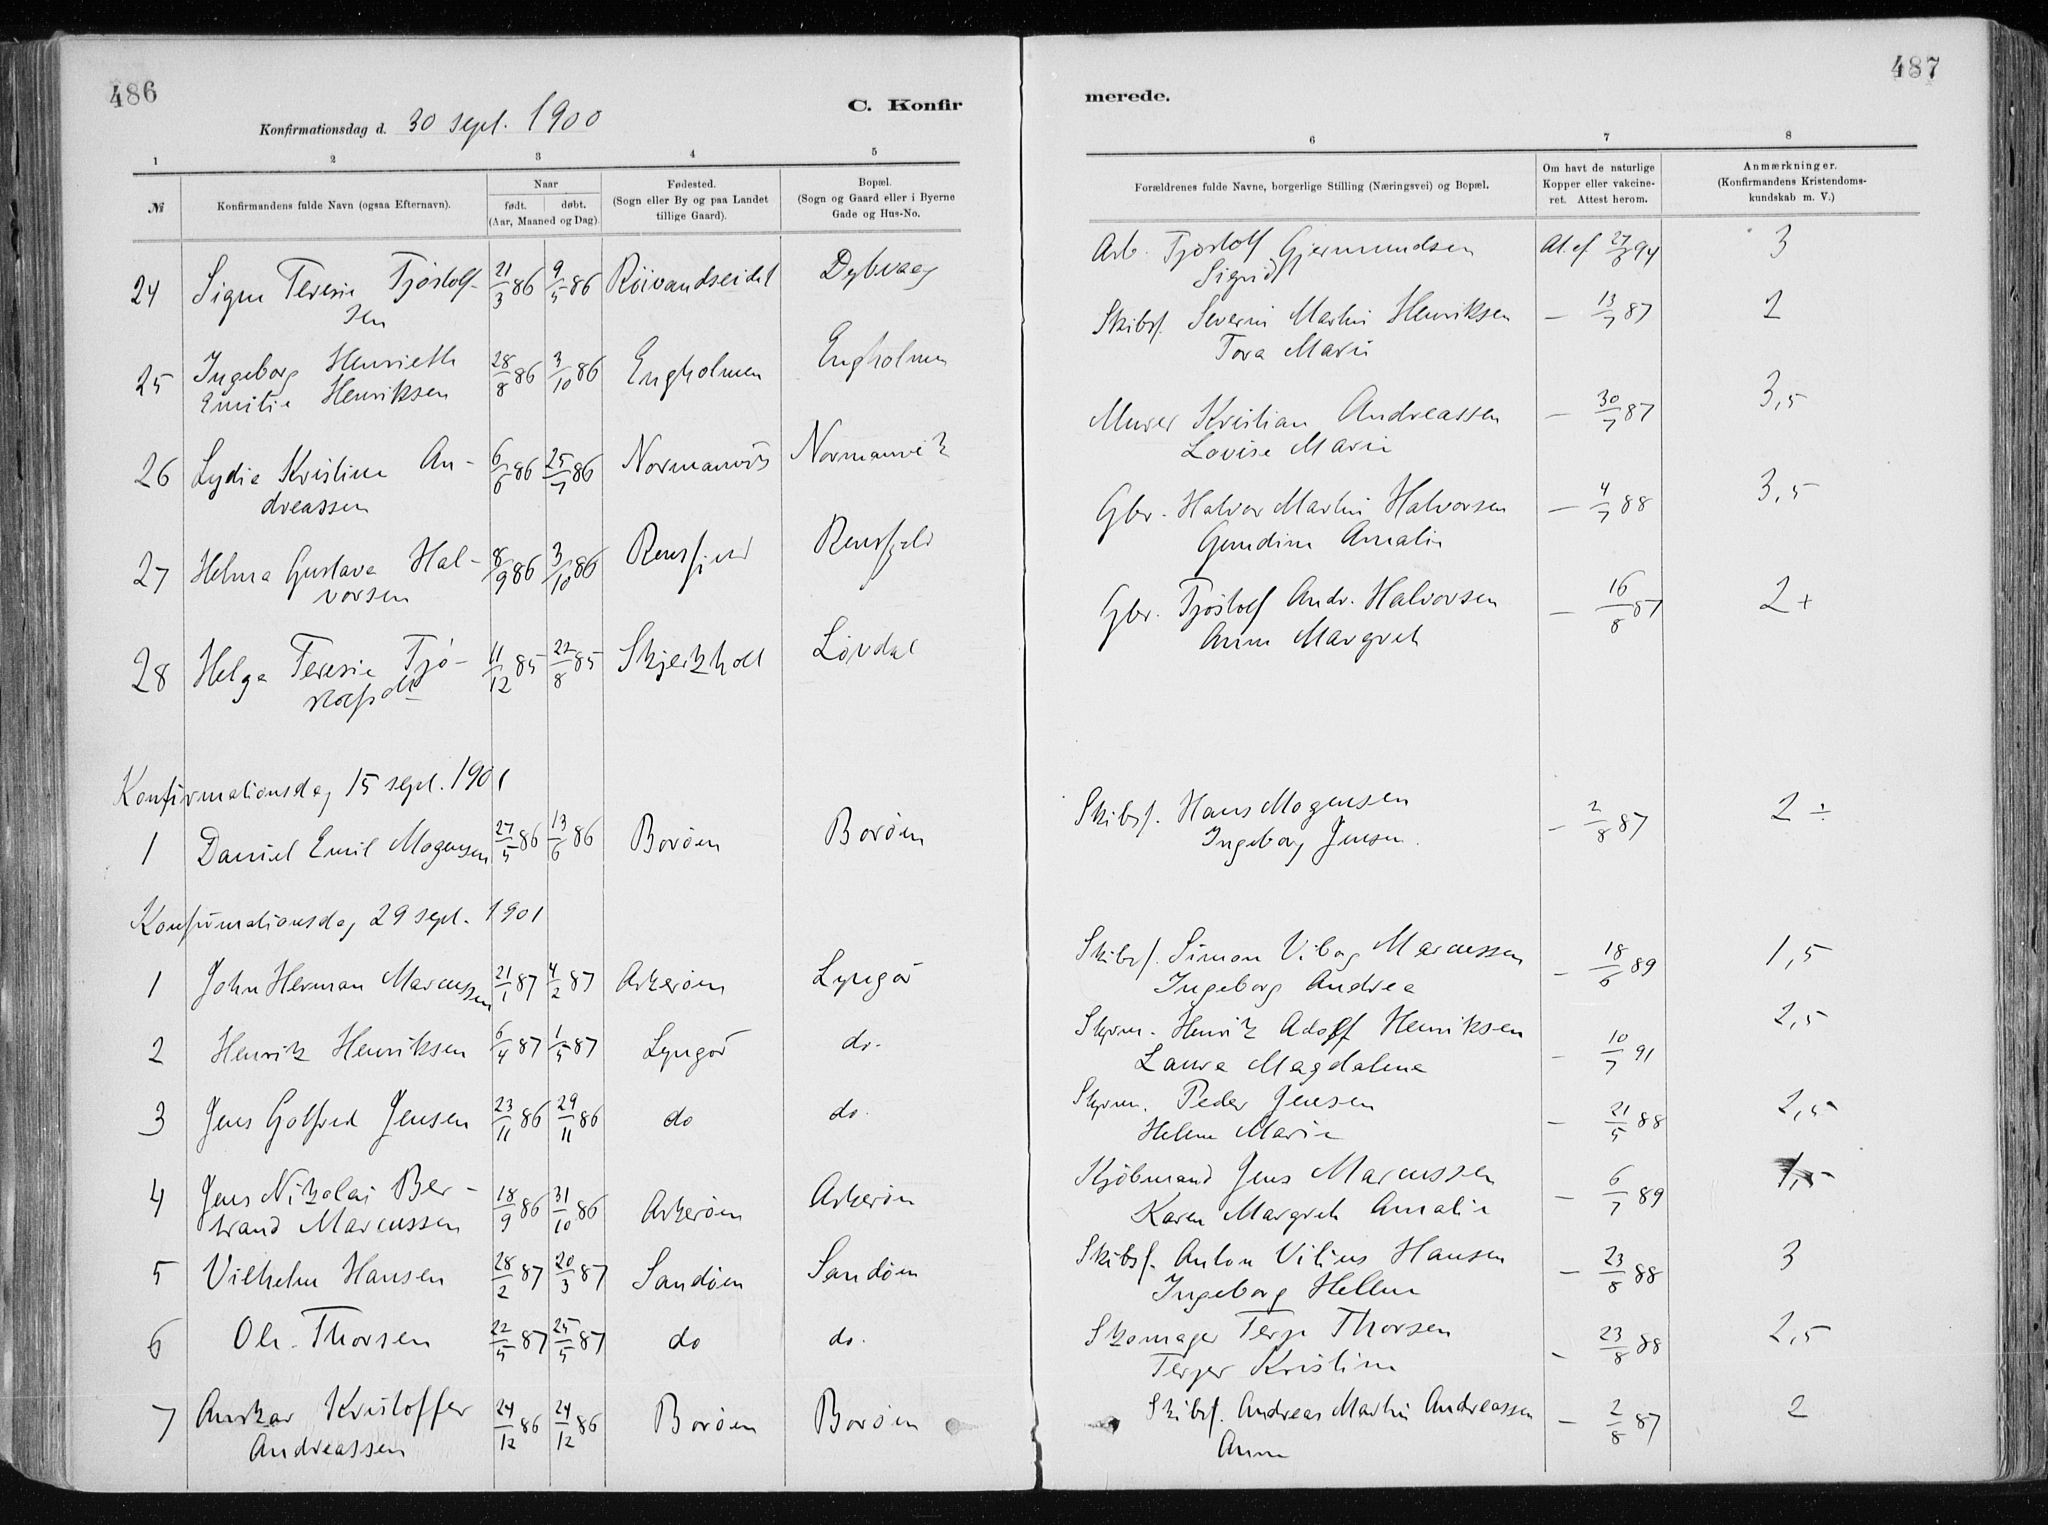 486
C. Konfir
Konfirmationsdag d. 30 sept. 1900
1 2 3 4 5
№ Konfirmandens fulde Navn (ogsaa Efternavn). Naar født. døbt. (Aar, Maaned og Dag). Fødested. (Sogn eller By og paa Landet tillige Gaard). Bopæl. (Sogn og Gaard eller i Byerne Gade og Hus-No.
24 Signe Teresie Tjöstolf- 21/3 86 9/5 86 Röivandseidet Dybvaag
sen
25 Ingeborg Henriette 28/8 86 3/10 86 Engholmen Engholmen
Emilie Henriksen
26 Lydia Kristine An- 6/6 86 25/7 86 Normanvig Normanvik
dreassen
27 Helma Gustava Hal- 8/9 86 3/10 86 Rensfjeld Rensfjeld
vorsen
28 Helga Teresie Tjö- 11/12 85 22/8 85 Skjerkholt Lövdal
Konfirmationsdag 15 sept. 1901
1 Daniel Emil Mogensen 27/5 86 13/6 86 Borøen Borøen
Konfirmationsdag 29 sept. 1901
1 John Herman Marcussen 21/1 87 4/2 87 Askerøen Lyngör
2 Henrik Henriksen 6/4 87 1/5 87 Lyngör do.
3 Jens Golfred Jensen 23/11 86 29/11 86 do do.
4 Jens Nikolai Ber- 18/9 86 31/10 86 Askerøen Askerøen
trand Marcussen
5 Vilhelm Hansen 28/2 87 20/3 87 Sandöen Sandöen
6 Ole Thorsen 22/5 87 25/5 87 do do.
7 Anskar Kristoffer 24/12 86 24/12 86 Borøen Borøen
Andreassen
487
merede.
6 7 8
Forældrenes fulde Navne, borgerlige Stilling (Næringsvei) og Bopæl. Om havt de naturlige Kopper eller vakcineret. Attest herom. Anmærkninger. (Konfirmandens Kristendomskundskab m. V.)
Arb. Tjöstolf Gjermundsen At. af 27/8 94 3
Sigrid
Skibsf. Severin Martin Henriksen – 13/7 87 2
Tora Marie
Murer Kristian Andreassen – 30/7 87 3,5
Lovise Marie
Gbr. Halvor Martin Halvorsen – 4/7 88 3,5
Gundine Amalie
Gbr. Tjöstolf Andr. Halvorsen – 16/8 87 2+
Anne Margreth
Skibsf. Hans Mogensen – 2/8 87 2 ÷
Ingeborg Jensen.
Skibsf. Simon Viborg Marcussen – 18/6 89 1,5
Ingeborg Andrea
Skpm. Henrik Adolf Henriksen – 10/7 91 2,5
Laura Magdalene
Skpm. Peder Jensen – 21/5 88 2,5
Helene Marie
Kjöbmand Jens Marcussen – 6/7 89 1,5
Karen Margreth Amalie
Skibsf. Anton Vilius Hansen – 23/8 88 3
Ingeborg Hellene
Skomager Terje Thorsen – 23/8 88 2,5
Terjer Kristine
Skibsf. Andreas Martin Andreassen – 2/8 87 2
Anne